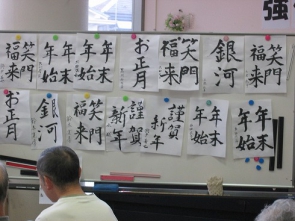 強
笑門
福来
年末
年始
年末
年始
お正月
笑門
福来
銀河
笑門
福来
お正月
銀河
笑門
福来
謹賀
新年
謹賀
新年
年末
年始
年末
年始